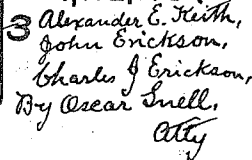 3 Alexander E. Keith,
John Erickson,
Charles J Erickson,
By Oscar Snell,
Atty